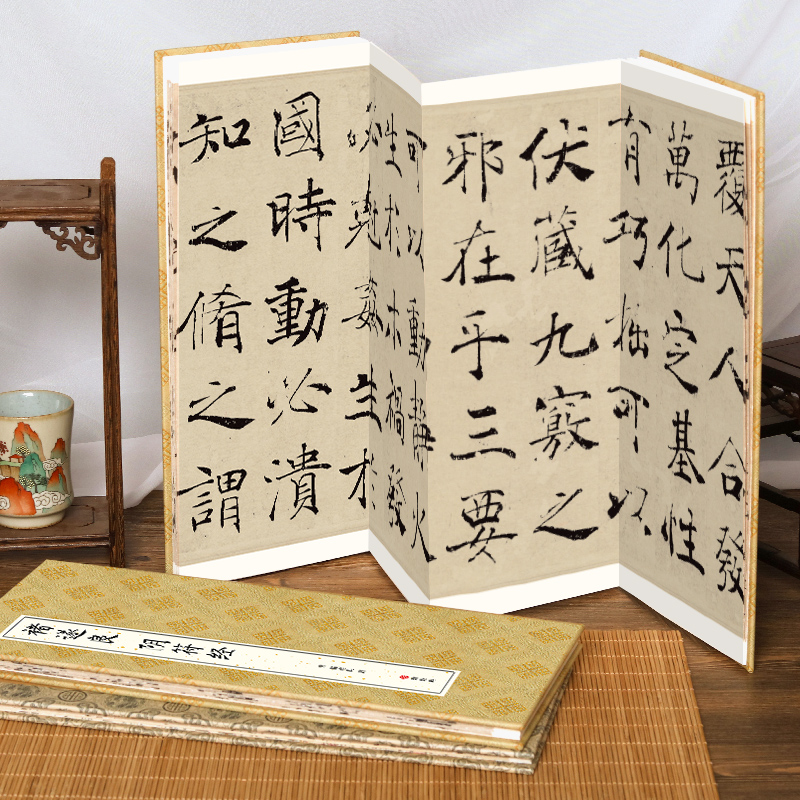 覆天人合發
萬化定基性
有巧拙可以
伏藏九竅之
邪在乎三要
可以動靜火
生於木禍發
必克姦生於
國時動必潰
知之脩之謂
褚遂良 阴符经